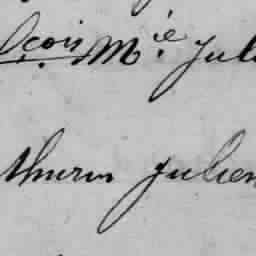 çois Mie Jul
thurin Julien